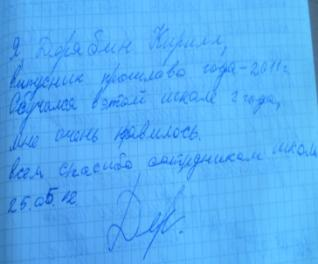 Я Дерябин Кирилл,
выпусник прошлава года-2011г.
Обучался в этой школе 2 года,
мне очень нравилось.
всем спасибо сотрудникам школы
25.05.12
Дер.